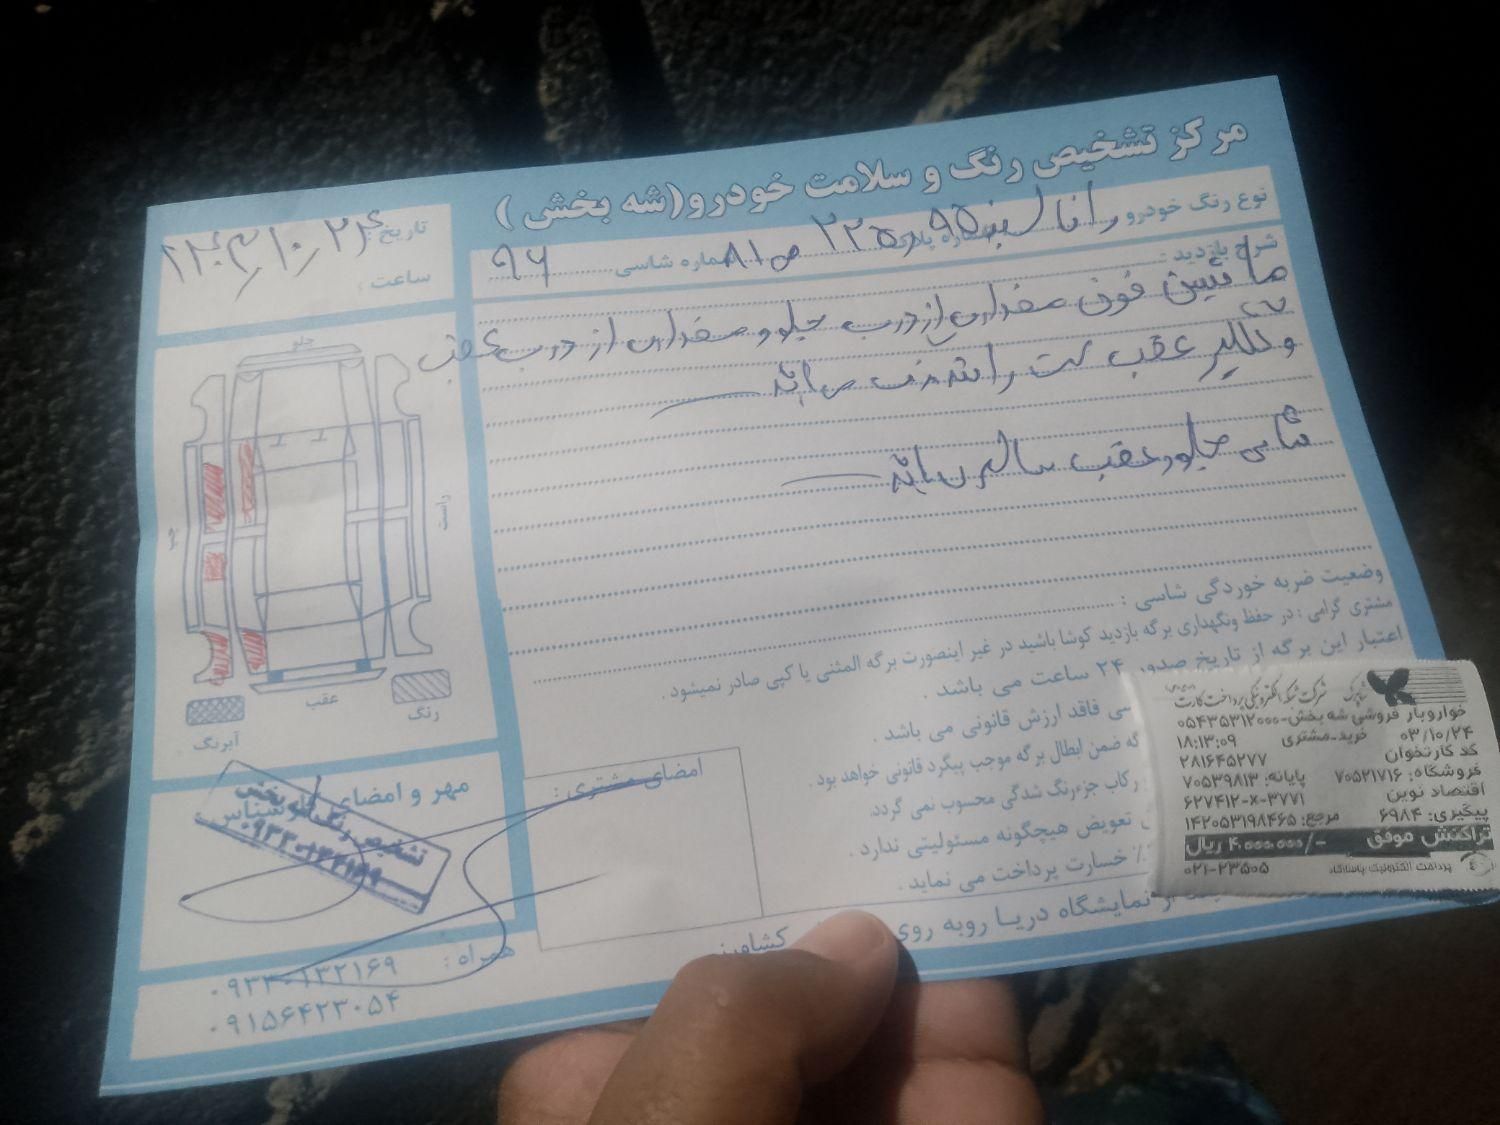 مرکز تشخیص رنگ و سلامت خودرو (شه بخش)
نوع رنگ خودرو رانا سفید شماره پلاک ۹۵ ۲۲ شماره شاسی ۹۶
تاریخ: ۱۴۰۳/۱۰/۲۴
ساعت:
شرح بازدید:
ماشین فوق مقداری از درب جلو و مقداری از درب عقب
و گلگیر عقب سمت
شاسی جلو و عقب سالم میباشد
جلو
راست
چپ
عقب
رنگ
آبرنگ
وضعیت ضربه خوردگی شاسی:
مشتری گرامی: در حفظ ونگهداری برگه بازدید کوشا باشید در غیر اینصورت برگه المثنی یا کپی صادر نمیشود.
اعتبار این برگه از تاریخ صدور ۲۴ ساعت می باشد.
سی فاقد ارزش قانونی می باشد.
گه ضمن ابطال برگه موجب پیگرد قانونی خواهد بود.
رکاب جزءرنگ شدگی محسوب نمی گردد.
تعویض هیچگونه مسئولیتی ندارد.
٪ خسارت پرداخت می نماید.
از نمایشگاه دریا روبه روی کشاورزی
امضای مشتری:
مهر و امضای کارشناس
تشخیص رنگ شه بخش
۰۹۳۳۰۱۳۲۱۶۹
همراه:
۰۹۳۳۰۱۳۲۱۶۹
۰۹۱۵۶۴۲۳۰۵۴
شرکت پرداخت الکترونیک
خواروبار فروشی شه بخش-۰۵۴۳۵۳۱۲۰۰۰
۰۳/۱۰/۲۴ خرید-مشتری ۱۸:۱۳:۰۹
کد کارتخوان ۲۸۱۶۴۵۲۷۷
فروشگاه: ۷۰۵۲۱۷۱۶ پایانه: ۷۰۵۳۹۸۱۳
اقتصاد نوین ۶۲۷۴۱۲-X-۳۷۷۱
پیگیری: ۶۹۸۴ مرجع: ۱۴۲۰۵۳۱۹۸۴۶۵
تراکنش موفق ۴،۰۰۰،۰۰۰/- ریال
پرداخت الکترونیک پاسارگاد ۰۲۱-۲۳۵۰۵